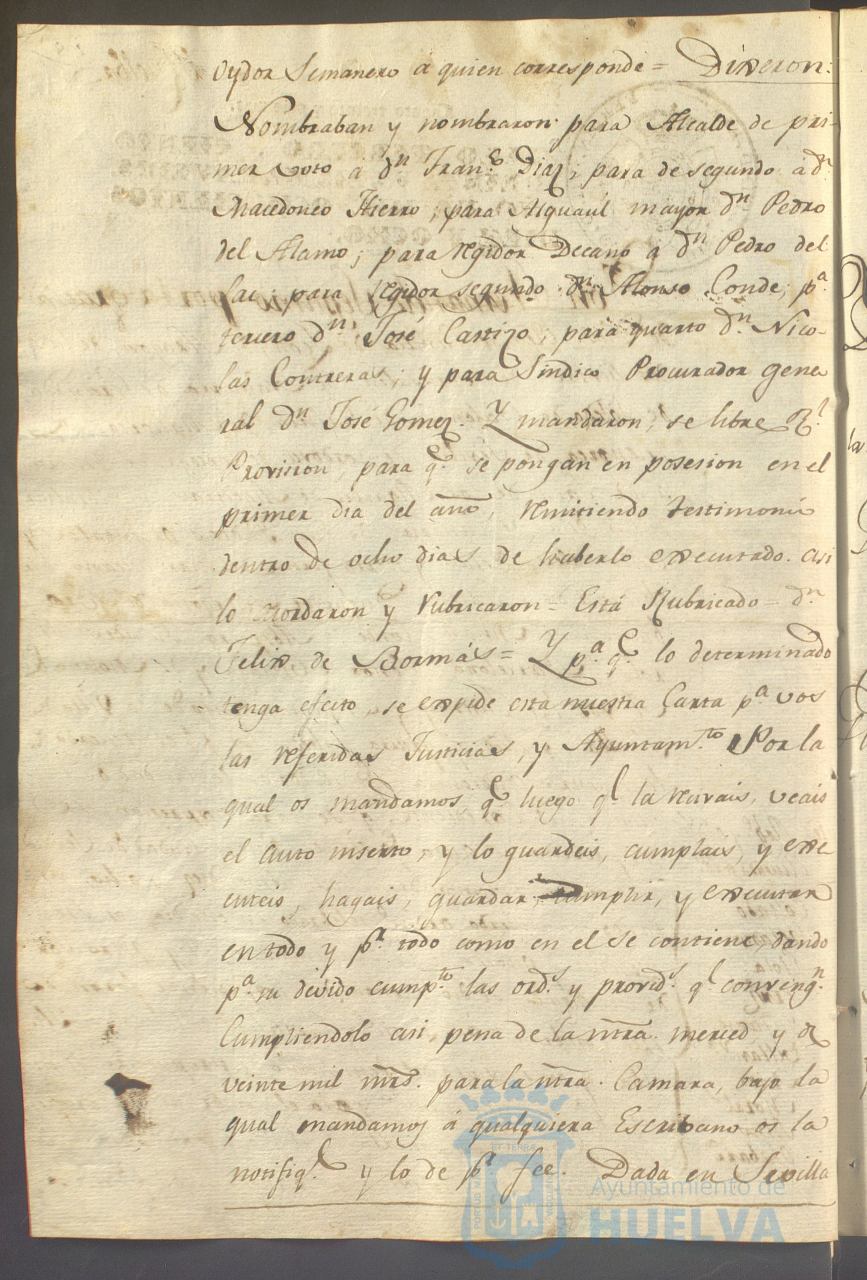 oydor Semanero á quien corresponde = Dixeron:
Nombraban y nombraron para Alcalde de pri-
mer voto á dn. Franco. Diaz; para de segundo á dn.
Macedonio Hierro; para Alguacil mayor dn. Pedro
del Alamo; para regidor Decano á dn. Pedro del
; para regidor segundo dn. Alonso Conde; pa.
tercero dn. José Castizo; para quarto dn. Nico-
las Contreras; y para Sindico Procurador Gene
ral dn. José Gomez. Y mandaron, se libre Rl.
Provision, para qe. se pongan en posesion en el
primer dia del año, remitiendo testimonio
dentro de ocho dias de haberlo executado. asi
lo acordaron y rubricaron = Está Rubricado = dn.
Felix de Bormás = Y pa. qe. lo determinado
tenga efecto, se expide esta nuestra Carta pa. vos
las referidas Justicias, y Ayuntamto. Por la
qual os mandamos, qe. luego qe. la recivais, veais
el auto inserto, y lo guardeis, cumplais, y exe
cuteis, hagais, guardar, cumplir, y executar
en todo y pr. todo como en el se contiene, dando
pa. su devido cumpto. las ords. y provids. qe. convengn.
Cumpliendolo asi, pena de la ntra. merced y de
veinte mil mrs. para la ntra. Camara, bajo la
qual mandamos á qualquiera Escribano os la
notifiqe. y lo de pr. fee. Dada en Sevilla
Ayuntamiento de
HUELVA